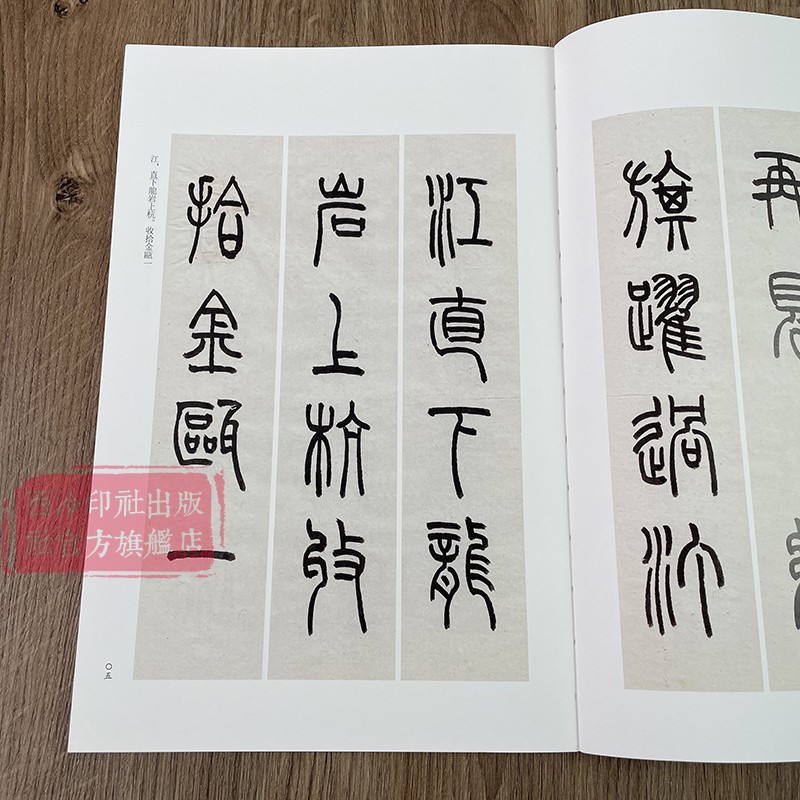 再見
旗躍過汀
江直下龍
岩上杭收
拾金甌一
江，直下龍岩上杭。收拾金甌一
〇五
西泠印社出版
社官方旗艦店